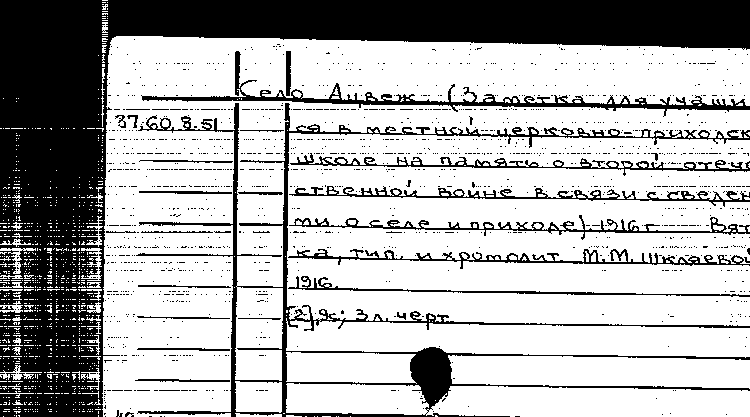 Село Ацвеж. (Заметка для учащи
37,60,8.51 ся в местной церковно-приходск
школе на память о второй отече
ственной войне в связи с сведен
ми о селе и приходе). 1916 г. Вят
ка, тип. и хромолит. М.М. Шкляевой
1916.
[2], 9 с; 3 л. черт.